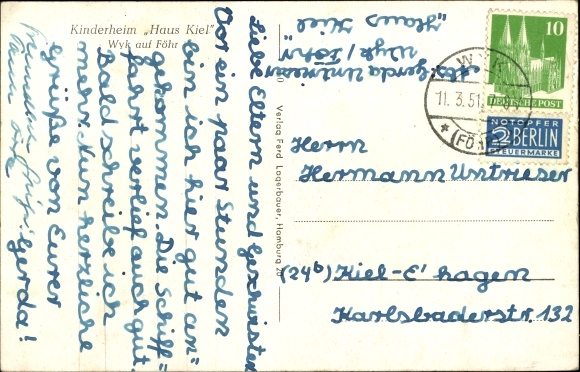 Kinderheim „Haus Kiel"
Wyk auf Föhr
Liebe Eltern und Geschwister
Vor ein paar Stunden
bin ich hier gut an=
gekommen. Die Schiff=
fahrt verlief auch gut.
Bald schreibe ich
mehr. Nun herzliche
Grüße von Eurer
Gerda!
Gerda Untrieser
Wyk / Föhr
"Haus Kiel"
Verlag Ferd. Lagerbauer, Hamburg 20
10
DEUTSCHE POST
NOTOPFER
2 BERLIN
STEUERMARKE
WYK
11. 3. 51.
* (FÖHR)
Herrn
Hermann Untrieser
(24b) Kiel-E' hagen
Karlsbaderstr. 132